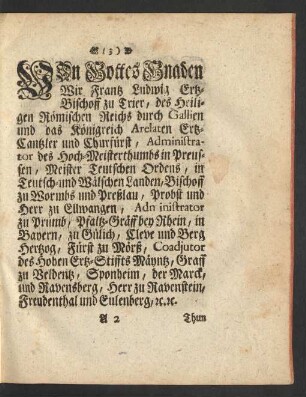 (3)
VOn Gottes Gnaden
Wir Frantz Ludwig Ertz-
Bischoff zu Trier, des Heili-
gen Römischen Reichs durch Gallien
und das Königreich Arelaten Ertz-
Cantzler und Churfürst, Administra-
tor des Hoch-Meisterthumbs in Preus-
sen, Meister Teutschen Ordens, in
Teutsch-und Wälschen Landen, Bischoff
zu Wormbs und Preßlau, Probst und
Herr zu Ellwangen, Administrator
zu Prümb, Pfaltz-Gräff bey Rhein, in
Bayern, zu Gülich, Cleve und Berg
Hertzog, Fürst zu Mörß, Coadjutor
des Hohen Ertz-Stiffts Mäyntz, Graff
zu Veldentz, Sponheim, der Marck,
und Ravensberg, Herr zu Ravenstein,
Freudenthal und Eulenberg, ꝛc. ꝛc.
A 2 Thun